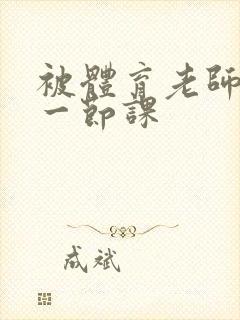 被體育老師
一節課
成斌